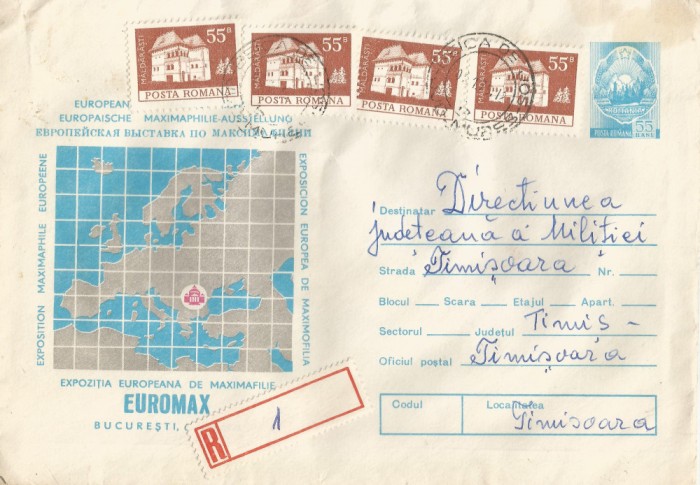 MALDĂRĂȘTI
55 B
POSTA ROMANA
MALDĂRĂȘTI
55 B
POSTA ROMANA
MALDĂRĂȘTI
55 B
POSTA ROMANA
MALDĂRĂȘTI
55 B
POSTA ROMANA
POSTA ROMANA
55
BANI
EUROPEAN
EUROPAISCHE MAXIMAPHILIE-AUSSTELLUNG
ЕВРОПЕЙСКАЯ ВЫСТАВКА ПО
EXPOSITION MAXIMAPHILE EUROPEENE
EXPOSICION EUROPEA DE MAXIMOFILIA
EXPOZIȚIA EUROPEANĂ DE MAXIMAFILIE
EUROMAX
BUCUREȘTI,
R
1
Destinatar Direcțiunea
județeană a Miliției
Strada Timișoara Nr.
Blocul Scara Etajul Apart.
Sectorul Județul Timis -
Oficiul poștal Timișoara
Codul Localitatea
Timisoara